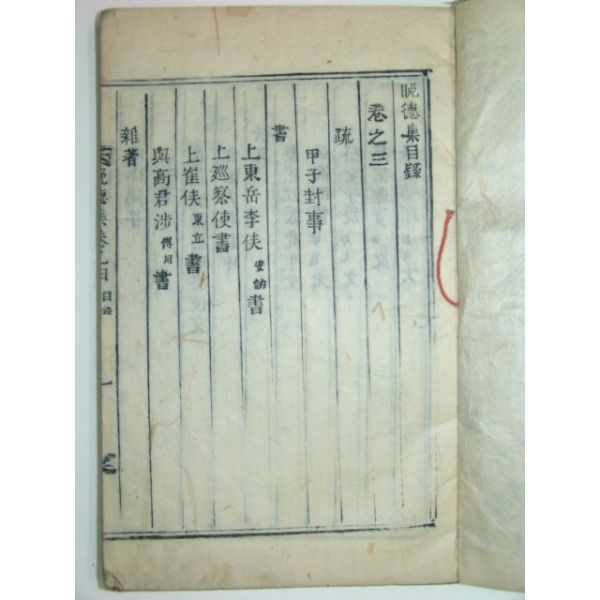 晩德集目錄
卷之三
疏
甲子封事
書
上東岳李侯安訥書
上巡察使書
上崔侯東立書
與高君涉傅川書
雜著
晩德集卷之四 目錄 一